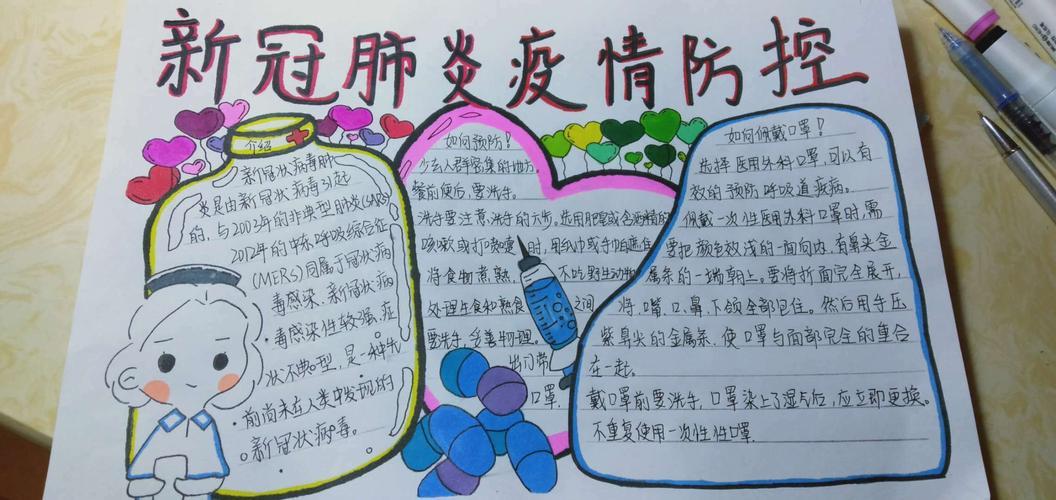 新冠肺炎疫情防控
介绍
新冠状病毒肺
炎是由新冠状病毒引起
的，与2003年的非典型肺炎(SARS)
2012年的中东呼吸综合症
(MERS)同属于冠状病
毒感染，新冠状病
毒感染性较强，症
状不典型，是一种先
前尚未在人类中发现的
新冠状病毒。
如何预防！
少去人群密集的地方，
餐前便后，要洗手。
洗手要注意，洗手的方，选用肥皂或含酒精的
咳嗽或打喷嚏时，用纸巾或手
将食物煮熟，不吃野生动物
处理生食和熟食之间
要洗手，妥善
出门带
口罩.
如何佩戴口罩！
选择医用外科口罩，可以有
效的预防呼吸道疾病。
佩戴一次性医用外科口罩时，需
要把颜色较浅的一面向内，有鼻夹金
属条的一端朝上。要将折面完全展开，
将，嘴、口鼻、下颌全部包住。然后用手压
紧鼻尖的金属条，使口罩与面部完全的
在一起。
戴口罩前要洗手，口罩染上了湿气后，应立即更换。
不重复使用一次性性口罩.